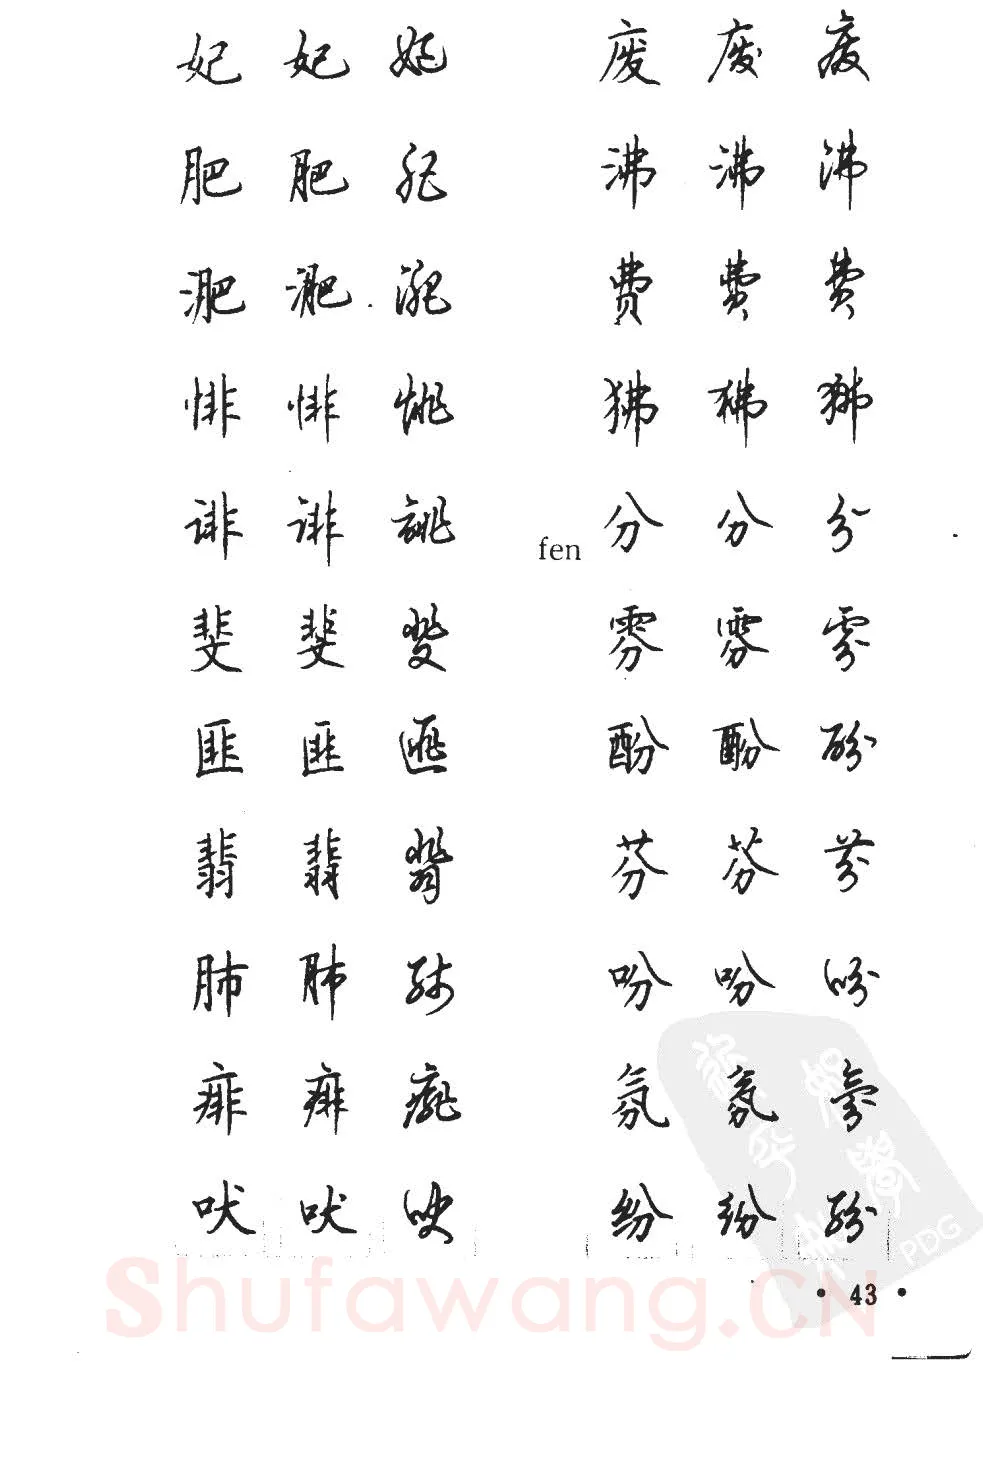 妃 妃 妃
肥 肥 肥
淝 淝 淝
悱 悱 悱
诽 诽 诽
斐 斐 斐
匪 匪 匪
翡 翡 翡
肺 肺 肺
痱 痱 痱
吠 吠 吠
废 废 废
沸 沸 沸
费 费 费
狒 狒 狒
fen 分 分 分
雰 雰 雰
酚 酚 酚
芬 芬 芬
吩 吩 吩
氛 氛 氛
纷 纷 纷
PDG
• 43 •
Shufawang.CN